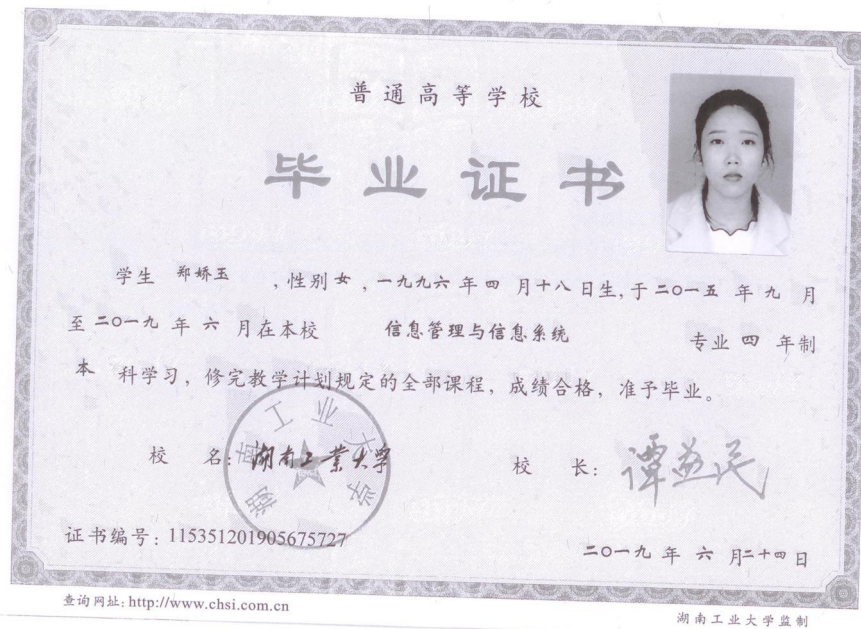 普通高等学校
毕业证书
学生 郑娇玉 ，性别女，一九九六年四月十八日生，于二〇一五年九月
至二〇一九年六月在本校 信息管理与信息系统 专业四年制
本科学习，修完教学计划规定的全部课程，成绩合格，准予毕业。
校 名：湖南工业大学 校 长：谭益民
湖南工业大学
证书编号：115351201905675727
二〇一九年六月二十四日
查询网址：http://www.chsi.com.cn
湖南工业大学监制